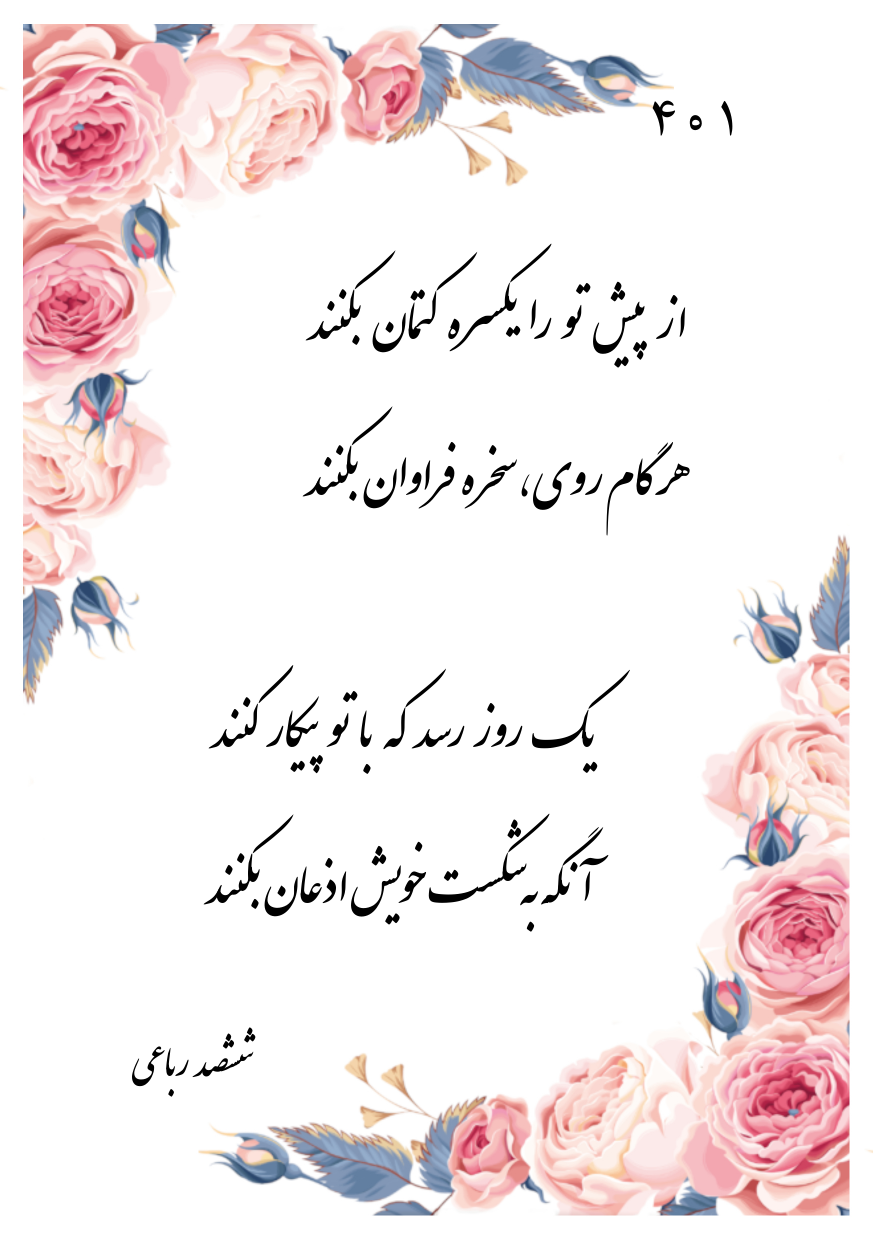 ۴۰۱
از پیش تو را یکسره کتمان بکنند
هر گام روی، سخره فراوان بکنند
یک روز رسد که با تو پیکار کنند
آنگه به شکست خویش اذعان بکنند
ششصد رباعی